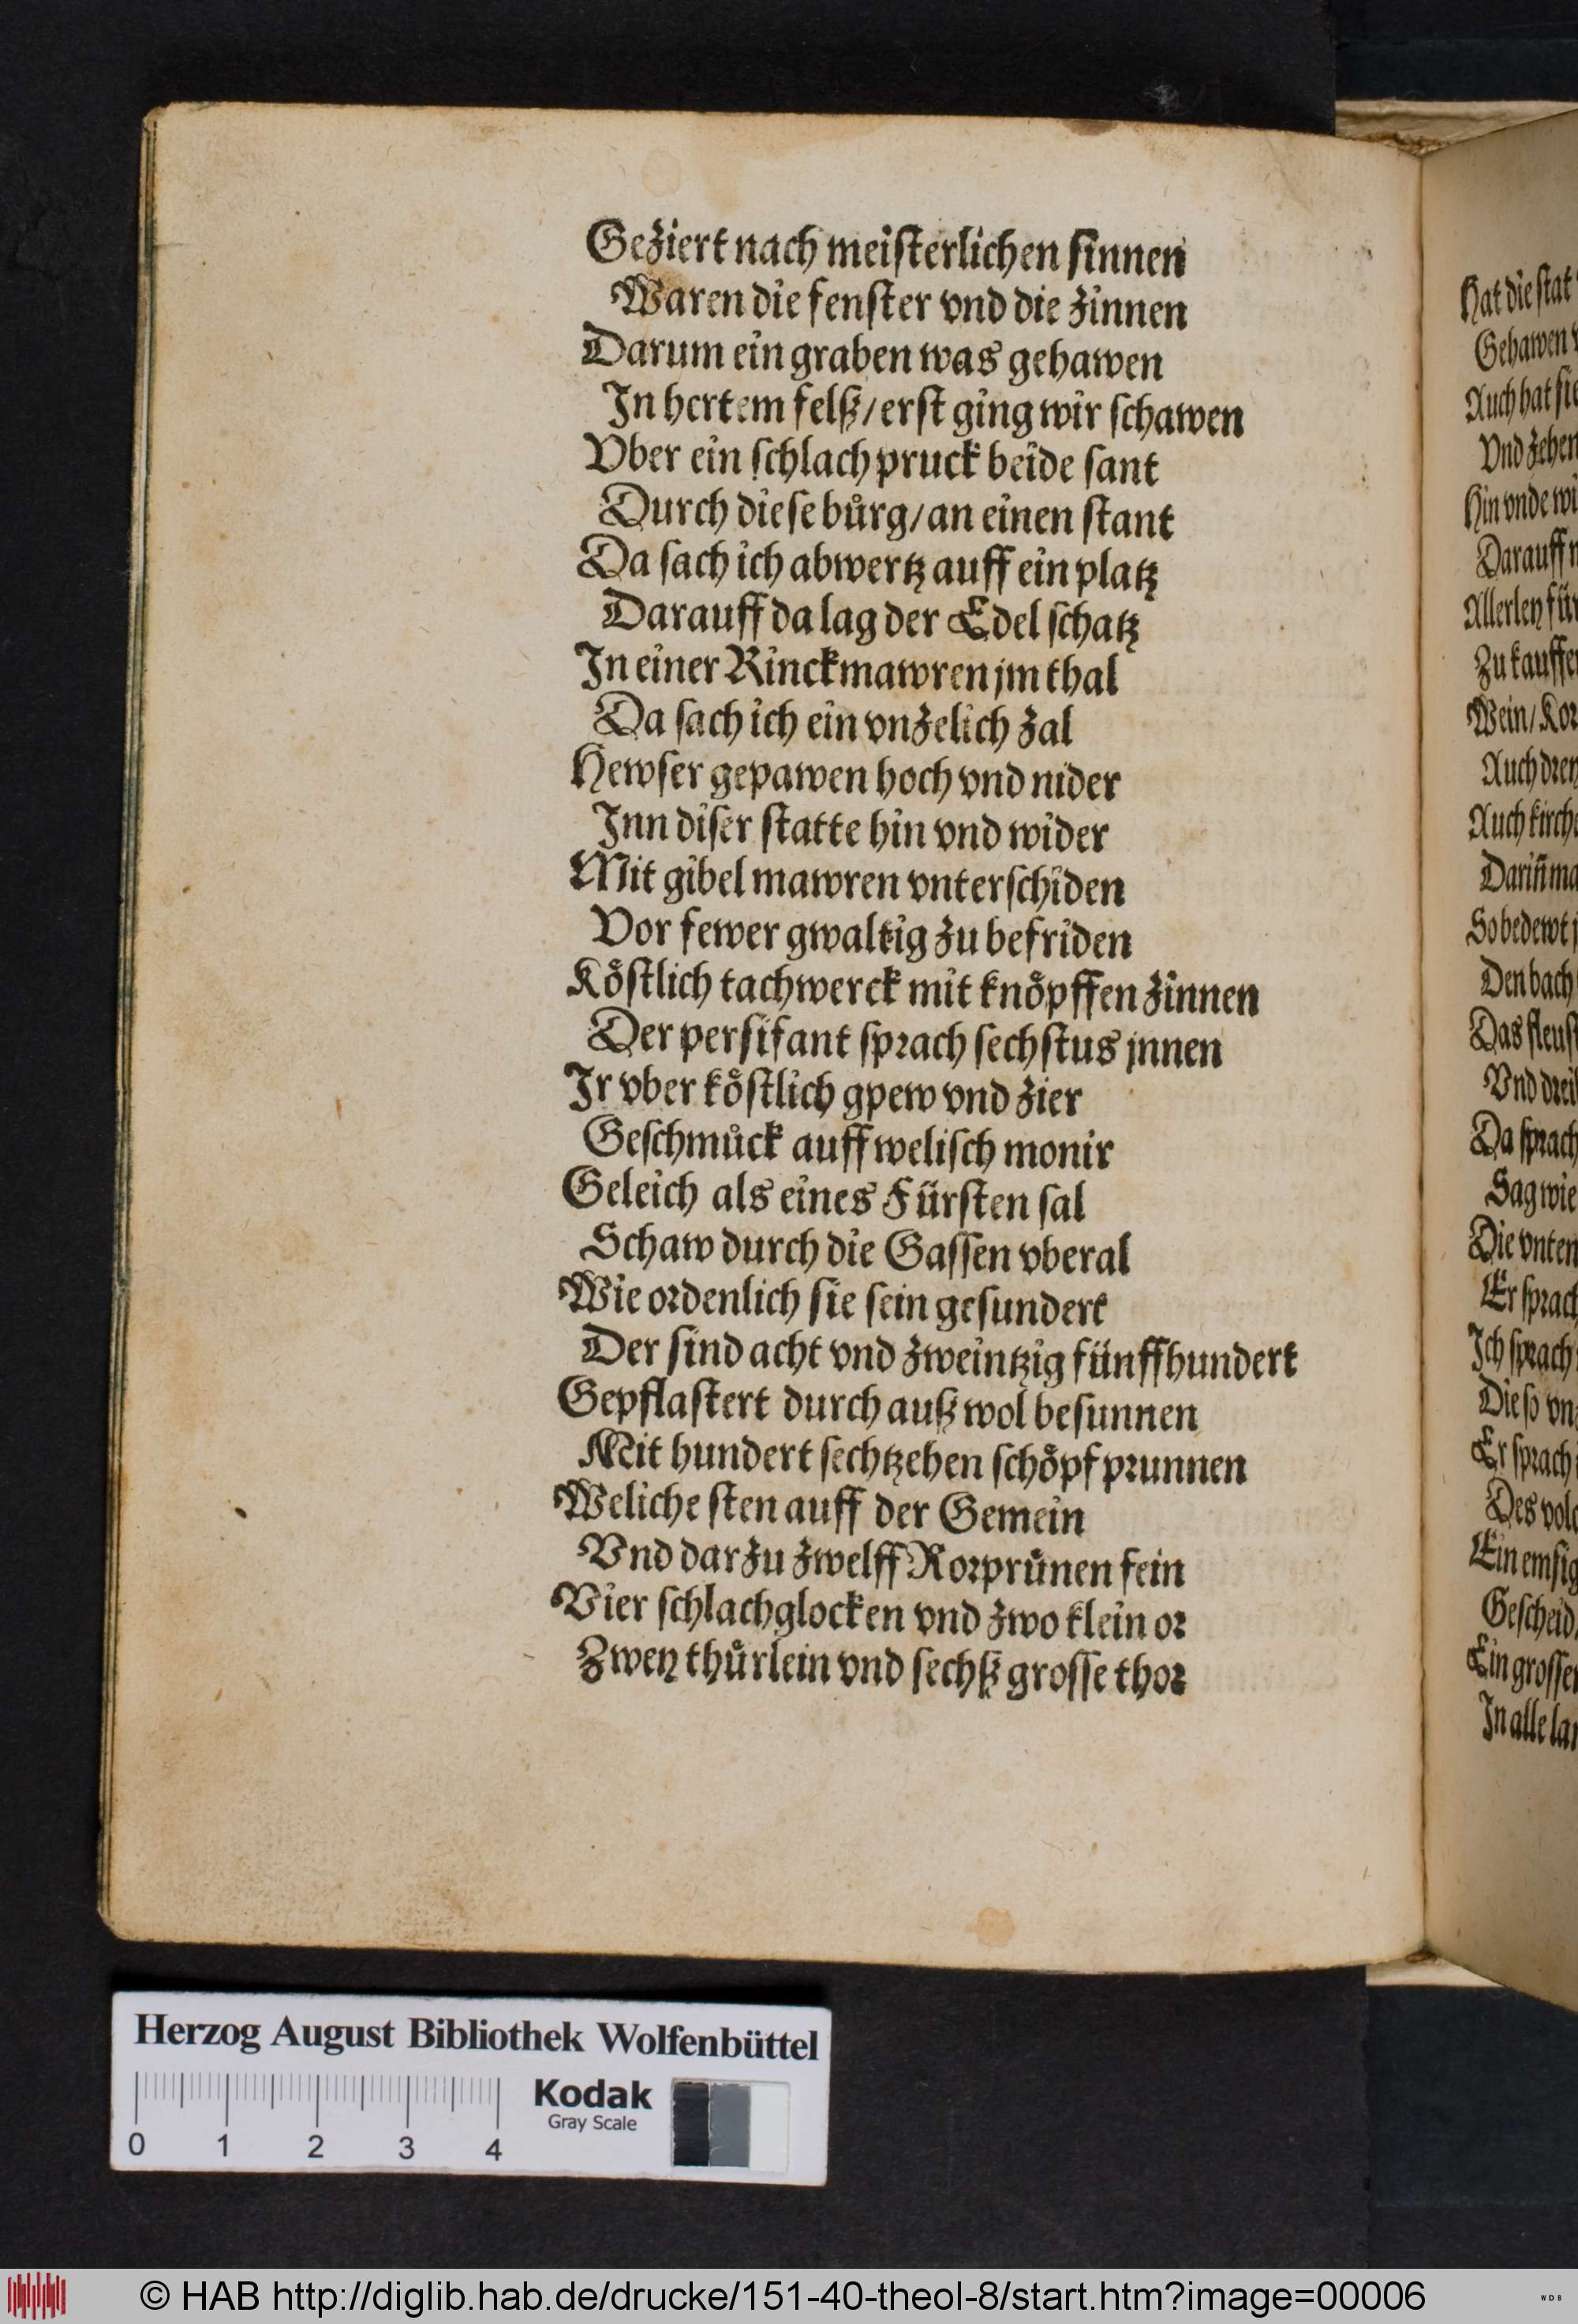 Geziert nach meiſterlichen ſinnen
Waren die fenſter vnd die zinnen
Darum ein graben was gehawen
In hertem felß / erſt ging wir ſchawen
Vber ein ſchlach pruck beide ſant
Durch dieſe bůrg / an einen ſtant
Da ſach ich abwertz auff ein platz
Darauff da lag der Edel ſchatz
In einer Rinckmawren jm thal
Da ſach ich ein vnzelich zal
Hewſer gepawen hoch vnd nider
Inn diſer ſtatte hin vnd wider
Mit gibel mawren vnterſchiden
Vor fewer gwaltig zu befriden
Koͤſtlich tachwerck mit knoͤpffen zinnen
Der perſifant ſprach ſechſtus jnnen
Ir vber koͤſtlich gpew vnd zier
Geſchmůck auff weliſch monir
Geleich als eines Fürſten ſal
Schaw durch die Gaſſen vberal
Wie ordenlich ſie ſein geſundert
Der ſind acht vnd zweintzig fünffhundert
Gepflaſtert durch auß wol beſunnen
Mit hundert ſechtzehen ſchoͤpf prunnen
Weliche ſten auff der Gemein
Vnd darzu zwelff Rorprůnen fein
Vier ſchlachglocken vnd zwo klein or
Zwey thůrlein vnd ſechß groſſe thor
Hat die ſtat
Gehawen
Auch hat ſie
Vnd zehen
Hin vnde wi
Darauff
Allerley für
Zu kauffe
Wein / Kor
Auch drey
Auch kirche
Dariñ ma
So bedewt
Den bach
Das fleuſt
Vnd drei
Da ſprach
Sag wie
Die vnten
Er ſprach
Ich ſprach
Die ſo vn
Er ſprach
Des volc
Ein emſig
Geſcheid
Ein groſſe
In alle la
Herzog August Bibliothek Wolfenbüttel
Kodak
Gray Scale
0 1 2 3 4
© HAB http://diglib.hab.de/drucke/151-40-theol-8/start.htm?image=00006
WDB